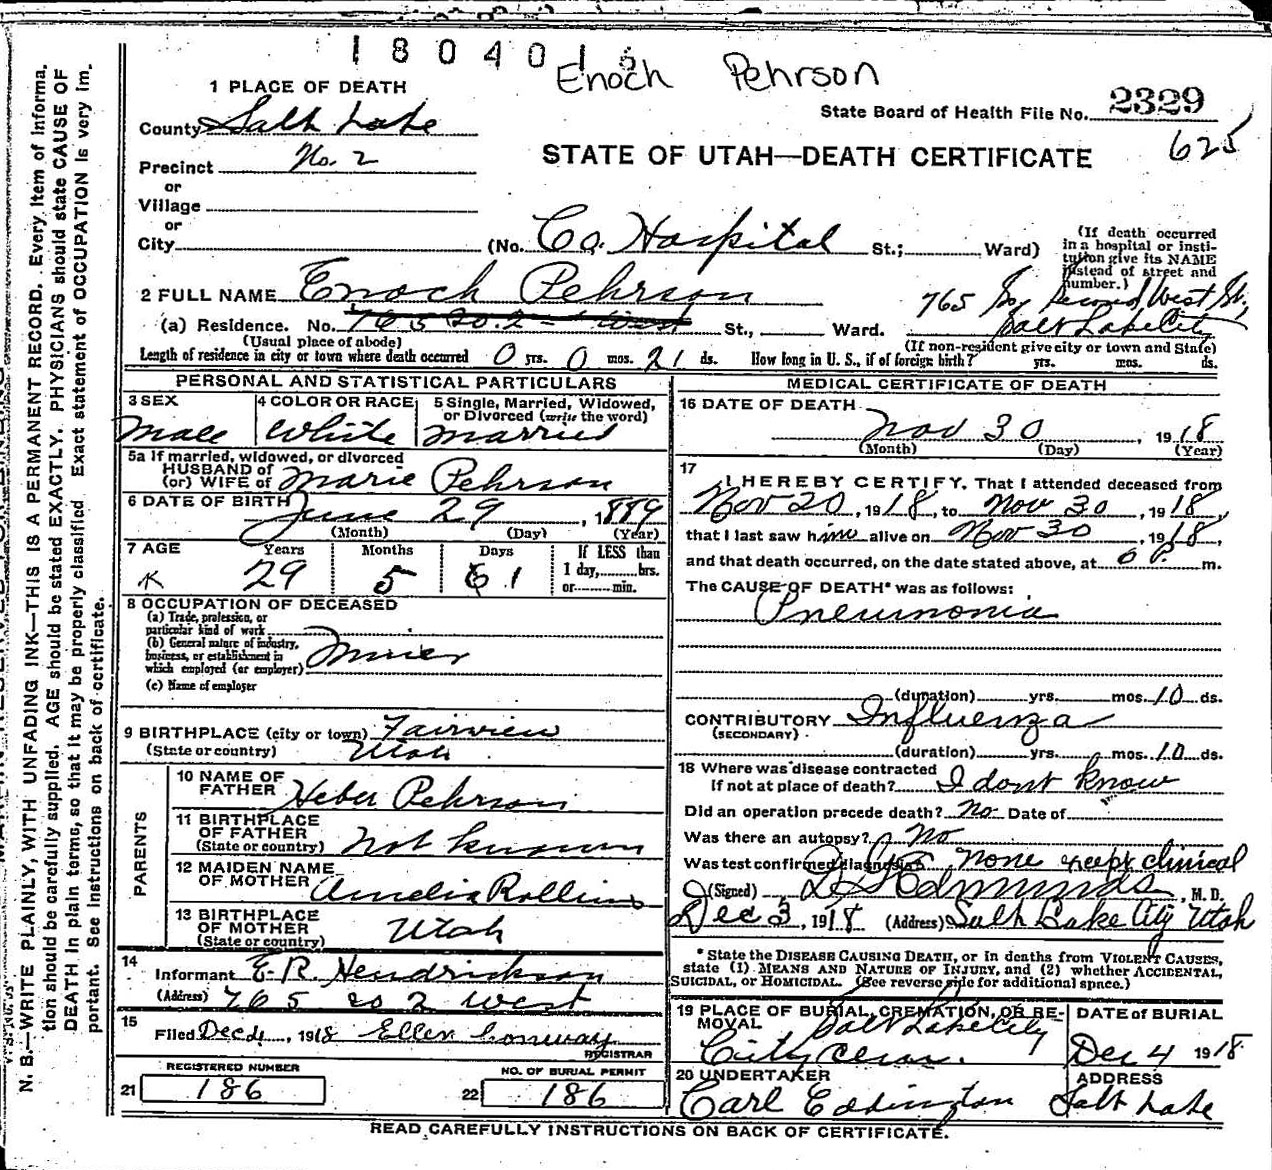 1804016
Enoch Pehrson
1 PLACE OF DEATH
State Board of Health File No. 2329
County Salt Lake
625
STATE OF UTAH—DEATH CERTIFICATE
Precinct No. 2
or
Village
or
City (No. Co. Hospital St.; Ward)
(If death occurred in a hospital or institution give its NAME instead of street and number.)
2 FULL NAME Enoch Pehrson
765 So Second West St,
Salt Lake City
(a) Residence. No. 765 So. 2 - West St., Ward.
(Usual place of abode) (If non-resident give city or town and State)
Length of residence in city or town where death occurred 0 yrs. 0 mos. 21 ds. How long in U. S., if of foreign birth? yrs. mos. ds.
PERSONAL AND STATISTICAL PARTICULARS
3 SEX Male
4 COLOR OR RACE White
5 Single, Married, Widowed, or Divorced (write the word) Married
5a If married, widowed, or divorced
HUSBAND of
(or) WIFE of Marie Pehrson
6 DATE OF BIRTH June 29, 1889
(Month) (Day) (Year)
7 AGE Years Months Days If LESS than
29 5 1 1 day, hrs.
or min.
8 OCCUPATION OF DECEASED
(a) Trade, profession, or
particular kind of work
(b) General nature of industry,
business, or establishment in
which employed (or employer) Miner
(c) Name of employer
9 BIRTHPLACE (city or town) Fairview
(State or country) Utah
PARENTS
10 NAME OF
FATHER Heber Pehrson
11 BIRTHPLACE
OF FATHER
(State or country) Not known
12 MAIDEN NAME
OF MOTHER Amelia Rollins
13 BIRTHPLACE
OF MOTHER
(State or country) Utah
14
Informant E. R. Hendrickson
(Address) 765 so 2 west
15
Filed Dec 4, 1918 Ellen Conway
REGISTRAR
REGISTERED NUMBER
21 186
NO. OF BURIAL PERMIT
22 186
MEDICAL CERTIFICATE OF DEATH
16 DATE OF DEATH
Nov 30, 1918
(Month) (Day) (Year)
17
I HEREBY CERTIFY, That I attended deceased from
Nov 20, 1918, to Nov 30, 1918,
that I last saw him alive on Nov 30, 1918,
and that death occurred, on the date stated above, at P. m.
The CAUSE OF DEATH* was as follows:
Pneumonia
(duration) yrs. mos. 10 ds.
CONTRIBUTORY Influenza
(SECONDARY)
(duration) yrs. mos. 10 ds.
18 Where was disease contracted
if not at place of death? I dont know
Did an operation precede death? No Date of
Was there an autopsy? No
Was test confirmed diagnosis none except clinical
(Signed) Edmunds, M. D.
Dec 3, 1918 (Address) Salt Lake City Utah
*State the DISEASE CAUSING DEATH, or in deaths from VIOLENT CAUSES,
state (1) MEANS AND NATURE OF INJURY, and (2) whether ACCIDENTAL,
SUICIDAL, or HOMICIDAL. (See reverse side for additional space.)
19 PLACE OF BURIAL, CREMATION, OR REMOVAL Salt Lake City
City Cem.
DATE OF BURIAL
Dec 4 1918
20 UNDERTAKER
Carl Eddington
ADDRESS
Salt Lake
READ CAREFULLY INSTRUCTIONS ON BACK OF CERTIFICATE.
N. B.—WRITE PLAINLY, WITH UNFADING INK—THIS IS A PERMANENT RECORD. Every item of informa-
tion should be carefully supplied. AGE should be stated EXACTLY. PHYSICIANS should state CAUSE OF
DEATH in plain terms, so that it may be properly classified. Exact statement of OCCUPATION is very im-
portant. See instructions on back of certificate.